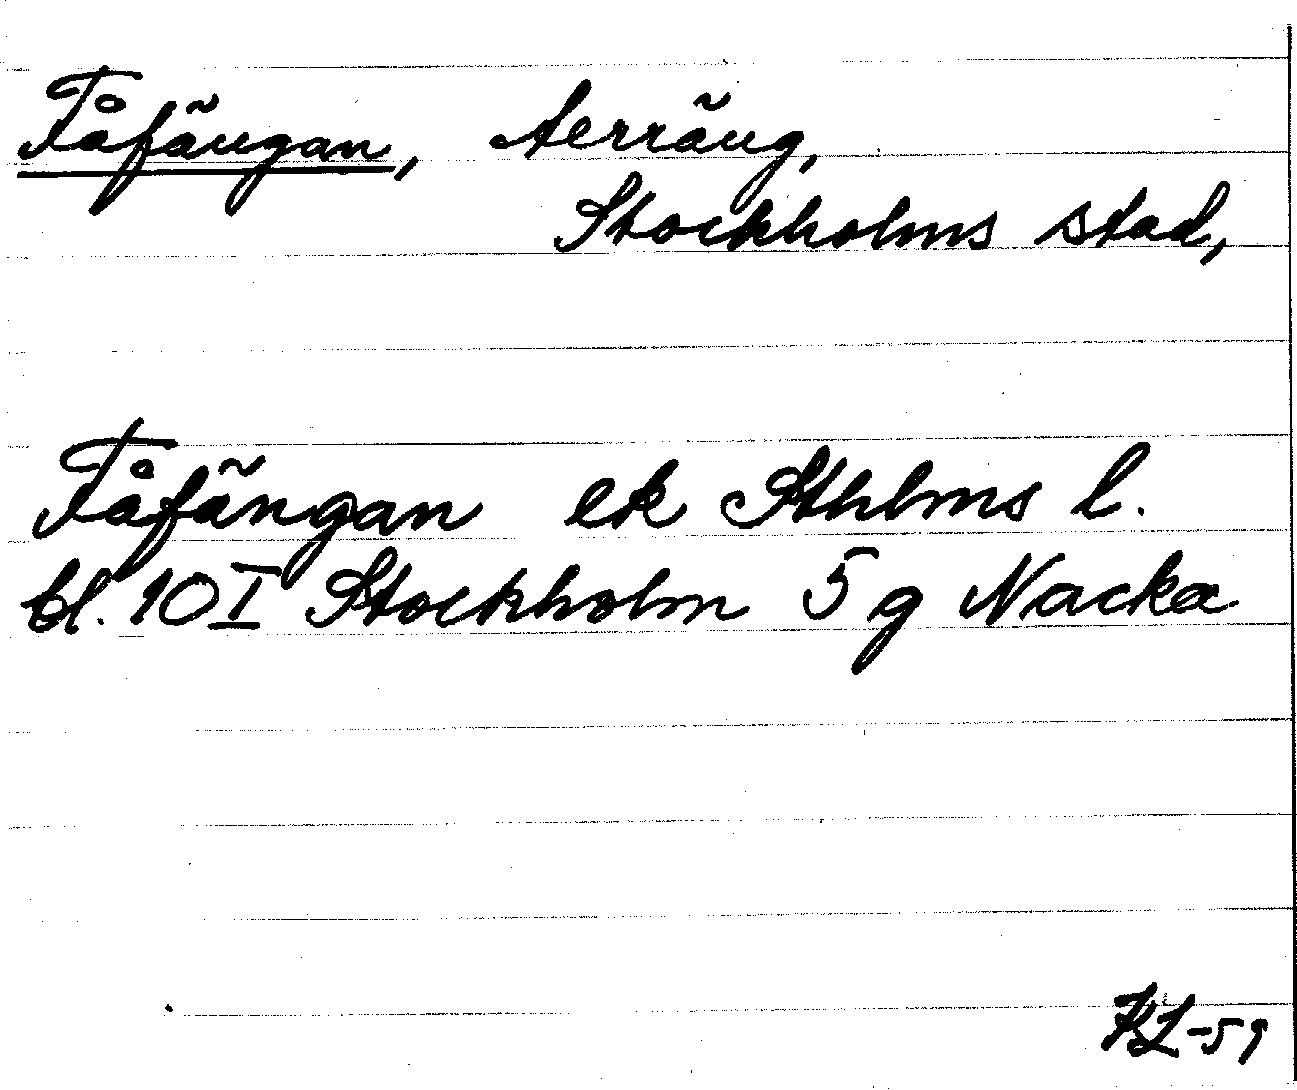 Fåfängan, terräng,
Stockholms stad,
Fåfängan ek Sthlms l.
bl. 10 I Stockholm 5 g Nacka
KL-59